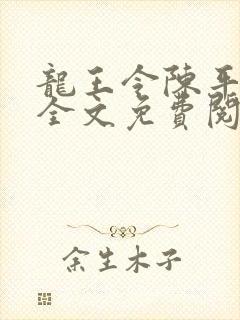 龍王令陳平
全文免費閱
余生木子